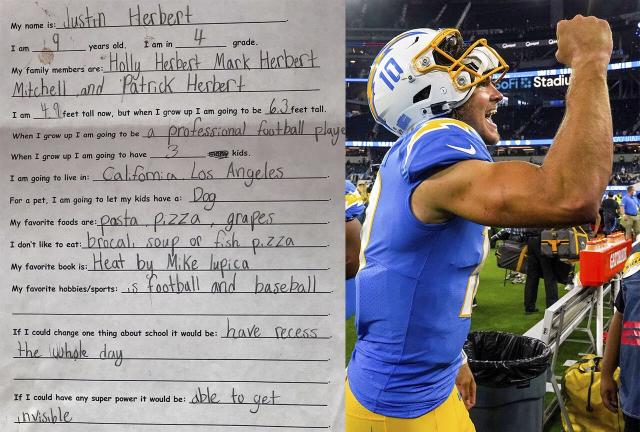 My name is: Justin Herbert
I am 9 years old. I am in 4 grade.
My family members are: Holly Herbert Mark Herbert
Mitchell and Patrick Herbert
I am 4.9 feet tall now, but when I grow up I am going to be 6.3 feet tall.
When I grow up I am going to be a professional football playe
When I grow up I am going to have 3 kids.
I am going to live in: California Los Angeles
For a pet, I am going to let my kids have a: Dog
My favorite foods are: pasta, pizza, grapes
I don't like to eat: brocal, soup or fish pizza
My favorite book is: Heat by Mike lupica
My favorite hobbies/sports: is football and baseball
If I could change one thing about school it would be: have recess
the whole day
If I could have any super power it would be: able to get
invisible
10
SoFi Stadium